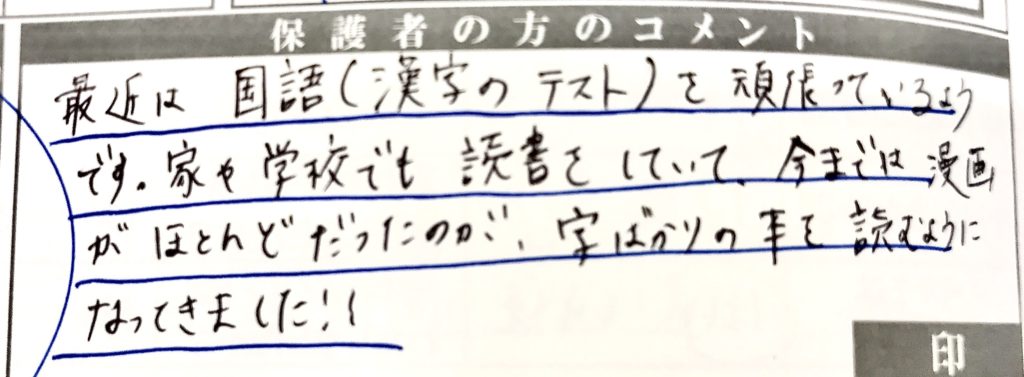 保護者の方のコメント
最近は 国語(漢字のテスト)を頑張っているよう
です。家や学校でも読書をしていて、今までは漫画
がほとんどだったのが、字ばかりの事を読むように
なってきました!!
印